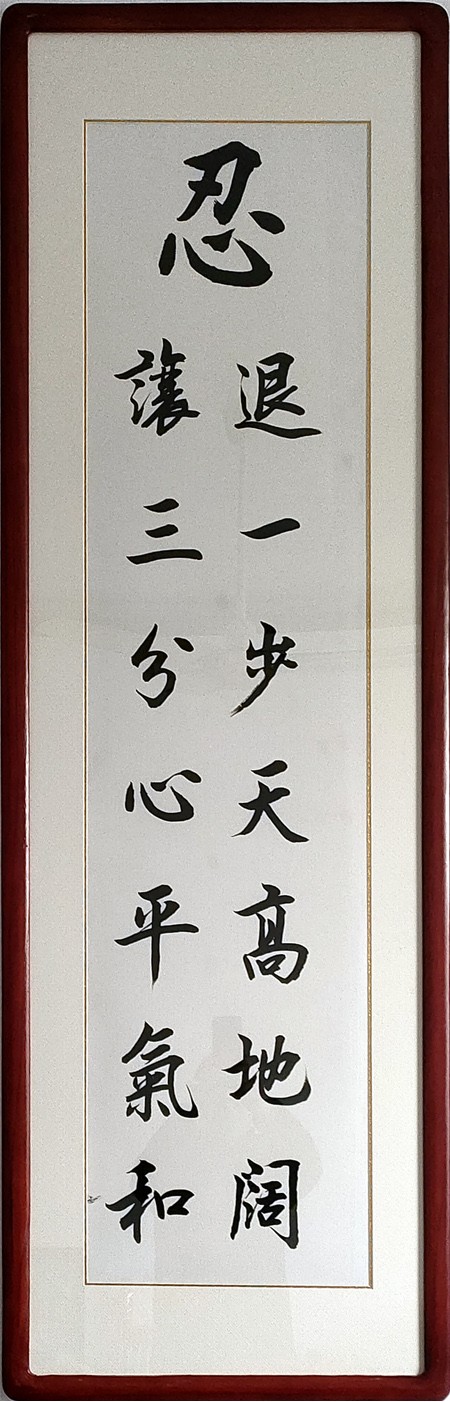 忍
退一步天高地阔
讓三分心平氣和